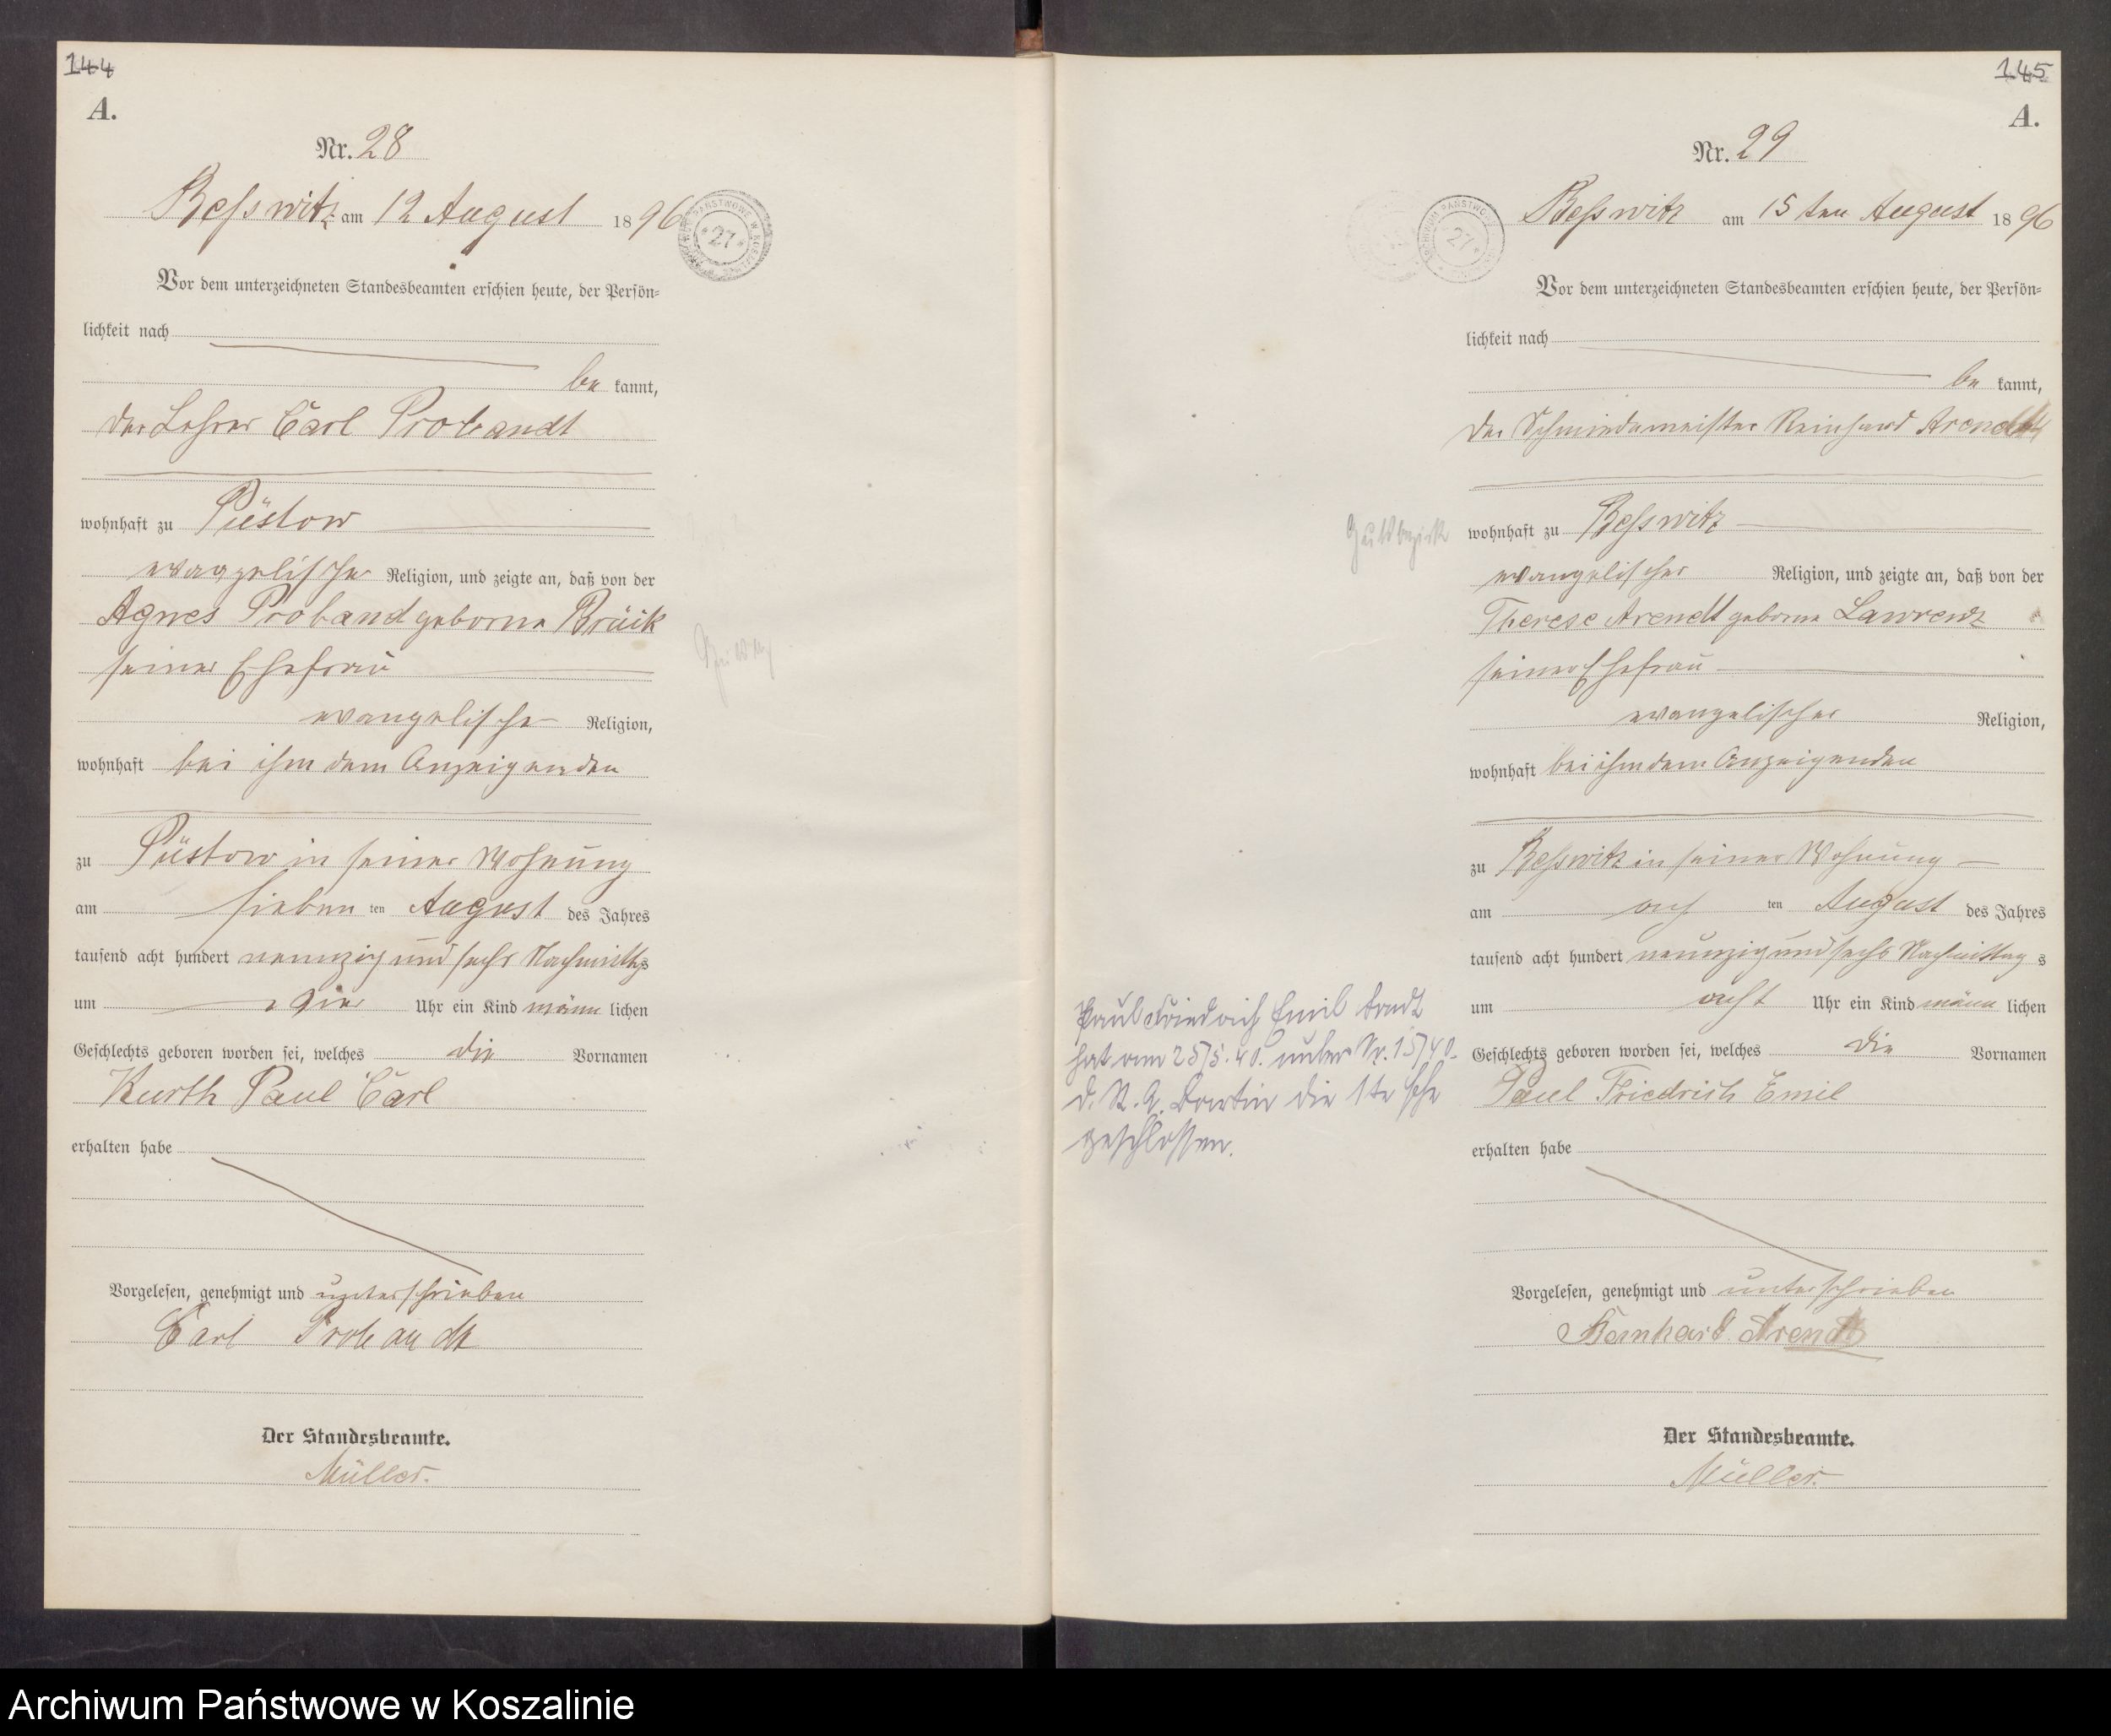 144
A.
Nr. 28
Beßwitz am 12 August 1896
ARCHIWUM PAŃSTWOWE W KOSZALINIE
* 27 *
Vor dem unterzeichneten Standesbeamten erschien heute, der Persön=
lichkeit nach
be kannt,
der Lehrer Carl Probandt
wohnhaft zu Püstow
evangelischer Religion, und zeigte an, daß von der
Agnes Proband geborne Brück
seiner Ehefrau
evangelische Religion,
wohnhaft bei ihm dem Anzeigenden
zu Püstow in seiner Wohnung
am sieben ten August des Jahres
tausend acht hundert neunzig und sechs Nachmittags
um vier Uhr ein Kind männ lichen
Geschlechts geboren worden sei, welches die Vornamen
Kurth Paul Carl
erhalten habe
Vorgelesen, genehmigt und unterschrieben
Carl Probandt
Der Standesbeamte.
Müller.
145
A.
Nr. 29
Beßwitz am 15 ten August 1896
ARCHIWUM PAŃSTWOWE
27
Vor dem unterzeichneten Standesbeamten erschien heute, der Persön=
lichkeit nach
be kannt,
der Schmiedemeister Reinhard Arendt
Gutsbezirk
wohnhaft zu Beßwitz
evangelischer Religion, und zeigte an, daß von der
Therese Arendt geborne Lawrenz
seiner Ehefrau
evangelischer Religion,
wohnhaft bei ihm dem Anzeigenden
zu Beßwitz in seiner Wohnung
am ach ten August des Jahres
tausend acht hundert neunzig und sechs Nachmittag s
um acht Uhr ein Kind männ lichen
Geschlechts geboren worden sei, welches die Vornamen
Paul Friedrich Emil
erhalten habe
Paul Friedrich Emil
hat am 25/5.40. unter Nr. 15/40.
d. St. A. Bartin die 1te Ehe
geschlossen.
Vorgelesen, genehmigt und unterschrieben
Reinhard Arendt
Der Standesbeamte.
Müller.
Archiwum Państwowe w Koszalinie